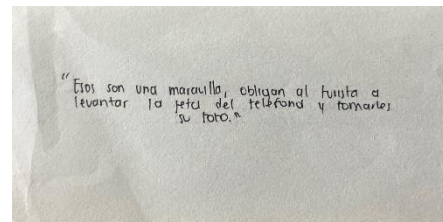 "Esos son una maravilla, obligan al turista a
levantar la jeta del teléfono y tomarles
su foto."